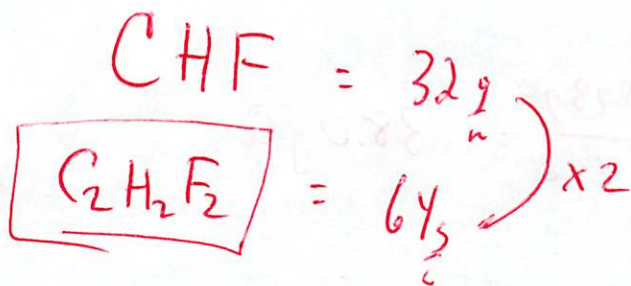 CHF = 32 g
C₂H₂F₂ = 64 g
x2